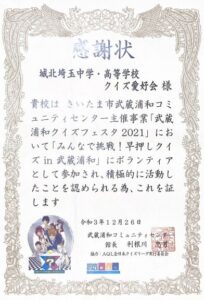 感謝状
城北埼玉中学・高等学校
クイズ愛好会 様
貴校は さいたま市武蔵浦和コミ
ュニティセンター主催事業「武蔵
浦和クイズフェスタ2021」にお
いて「みんなで挑戦!早押しクイ
ズin武蔵浦和」にボランティア
として参加され、積極的に活動し
たことを認められる為、これを証
します
令和3年12月26日
武蔵浦和コミュニティセンター
館長 利根川
協力・AQL全日本クイズリーグ実行委員会